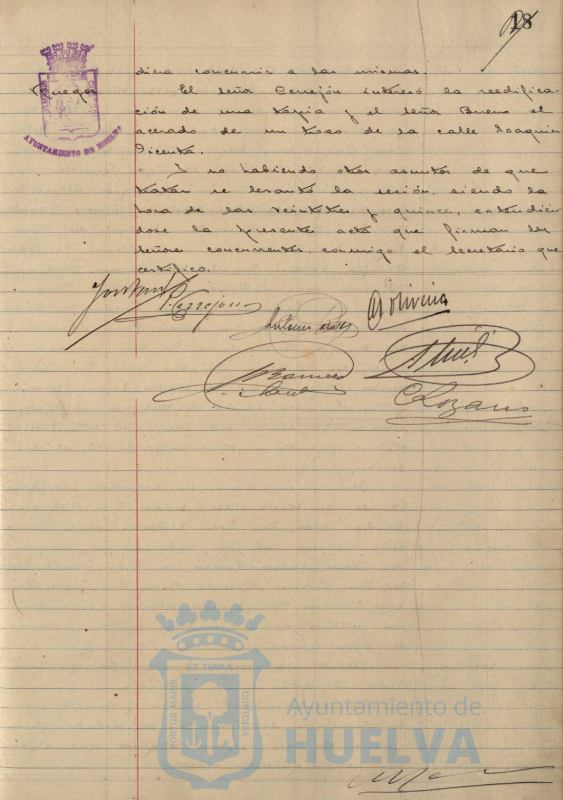 18
diera concurrir a las mismas.
Ruegos
El señor Cerrejón interesó la reedific-
ación de una tapia y el señor Bueno el
acerado de un trozo de la calle Joaquín
Dicenta.
Y no habiendo otros asuntos de que
tratar se levantó la sesión, siendo la
hora de las veintitres y quince, extendién
dose la presente acta que firman los
señores concurrentes, conmigo el secretario que
certifico.
AYUNTAMIENTO DE HUELVA
P. Cerrejón
Antonio
A. Oliveira
C. Lozano
PORTUS MARIS ET TERRÆ CUSTODIA
Ayuntamiento de
HUELVA